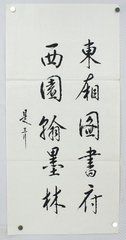 東廂圖書府
西園翰墨林